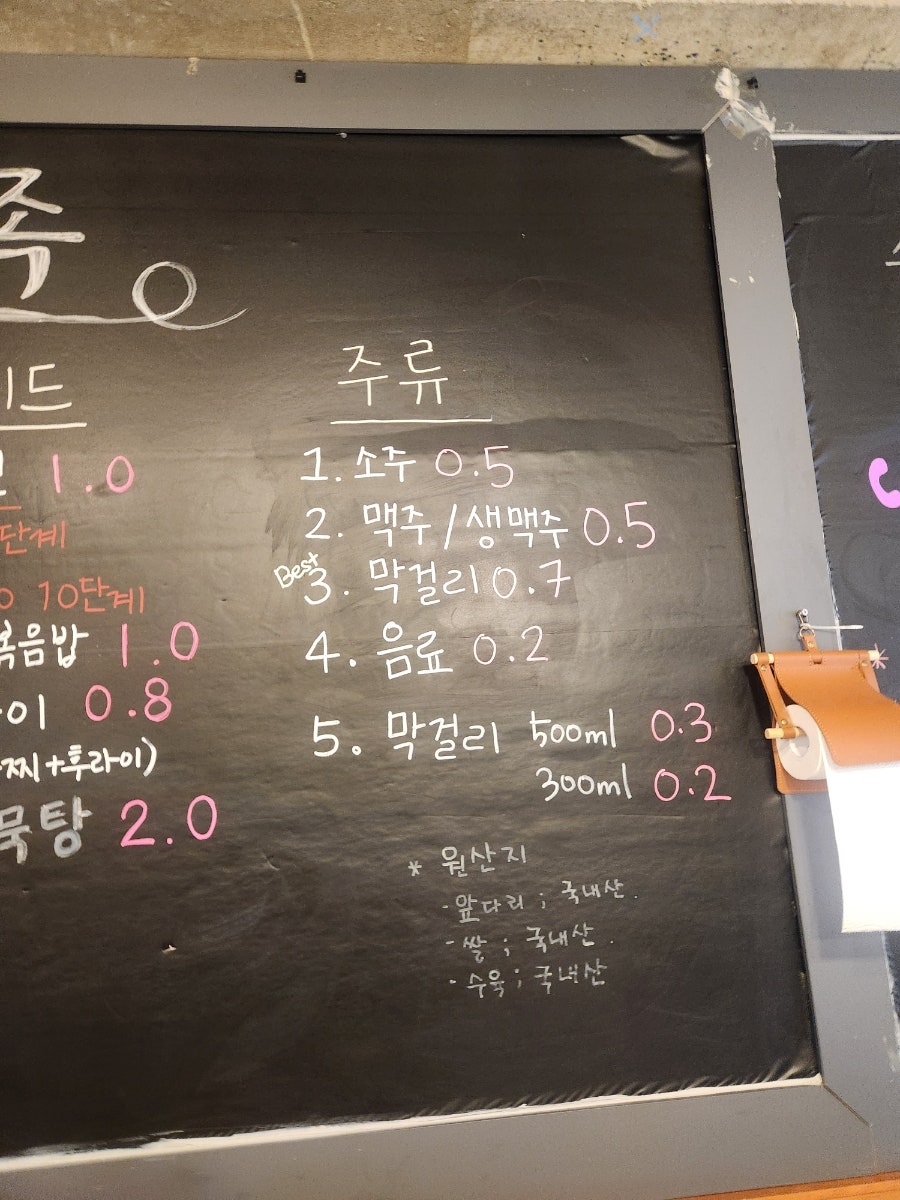 족
이드
1.0
단계
10단계
볶음밥 1.0
이 0.8
찌+후라이)
묵탕 2.0
주류
1. 소주 0.5
2. 맥주/생맥주 0.5
Best
3. 막걸리 0.7
4. 음료 0.2
5. 막걸리 500ml 0.3
300ml 0.2
* 원산지
- 앞다리 ; 국내산.
- 쌀 ; 국내산.
- 수육 ; 국내산